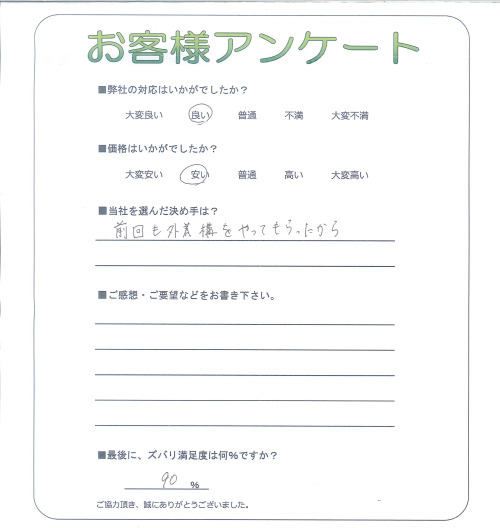 お客様アンケート
■弊社の対応はいかがでしたか？
大変良い 良い 普通 不満 大変不満
■価格はいかがでしたか？
大変安い 安い 普通 高い 大変高い
■当社を選んだ決め手は？
前回も外構をやってもらったから
■ご感想・ご要望などをお書き下さい。
■最後に、ズバリ満足度は何％ですか？
90 ％
ご協力頂き、誠にありがとうございました。